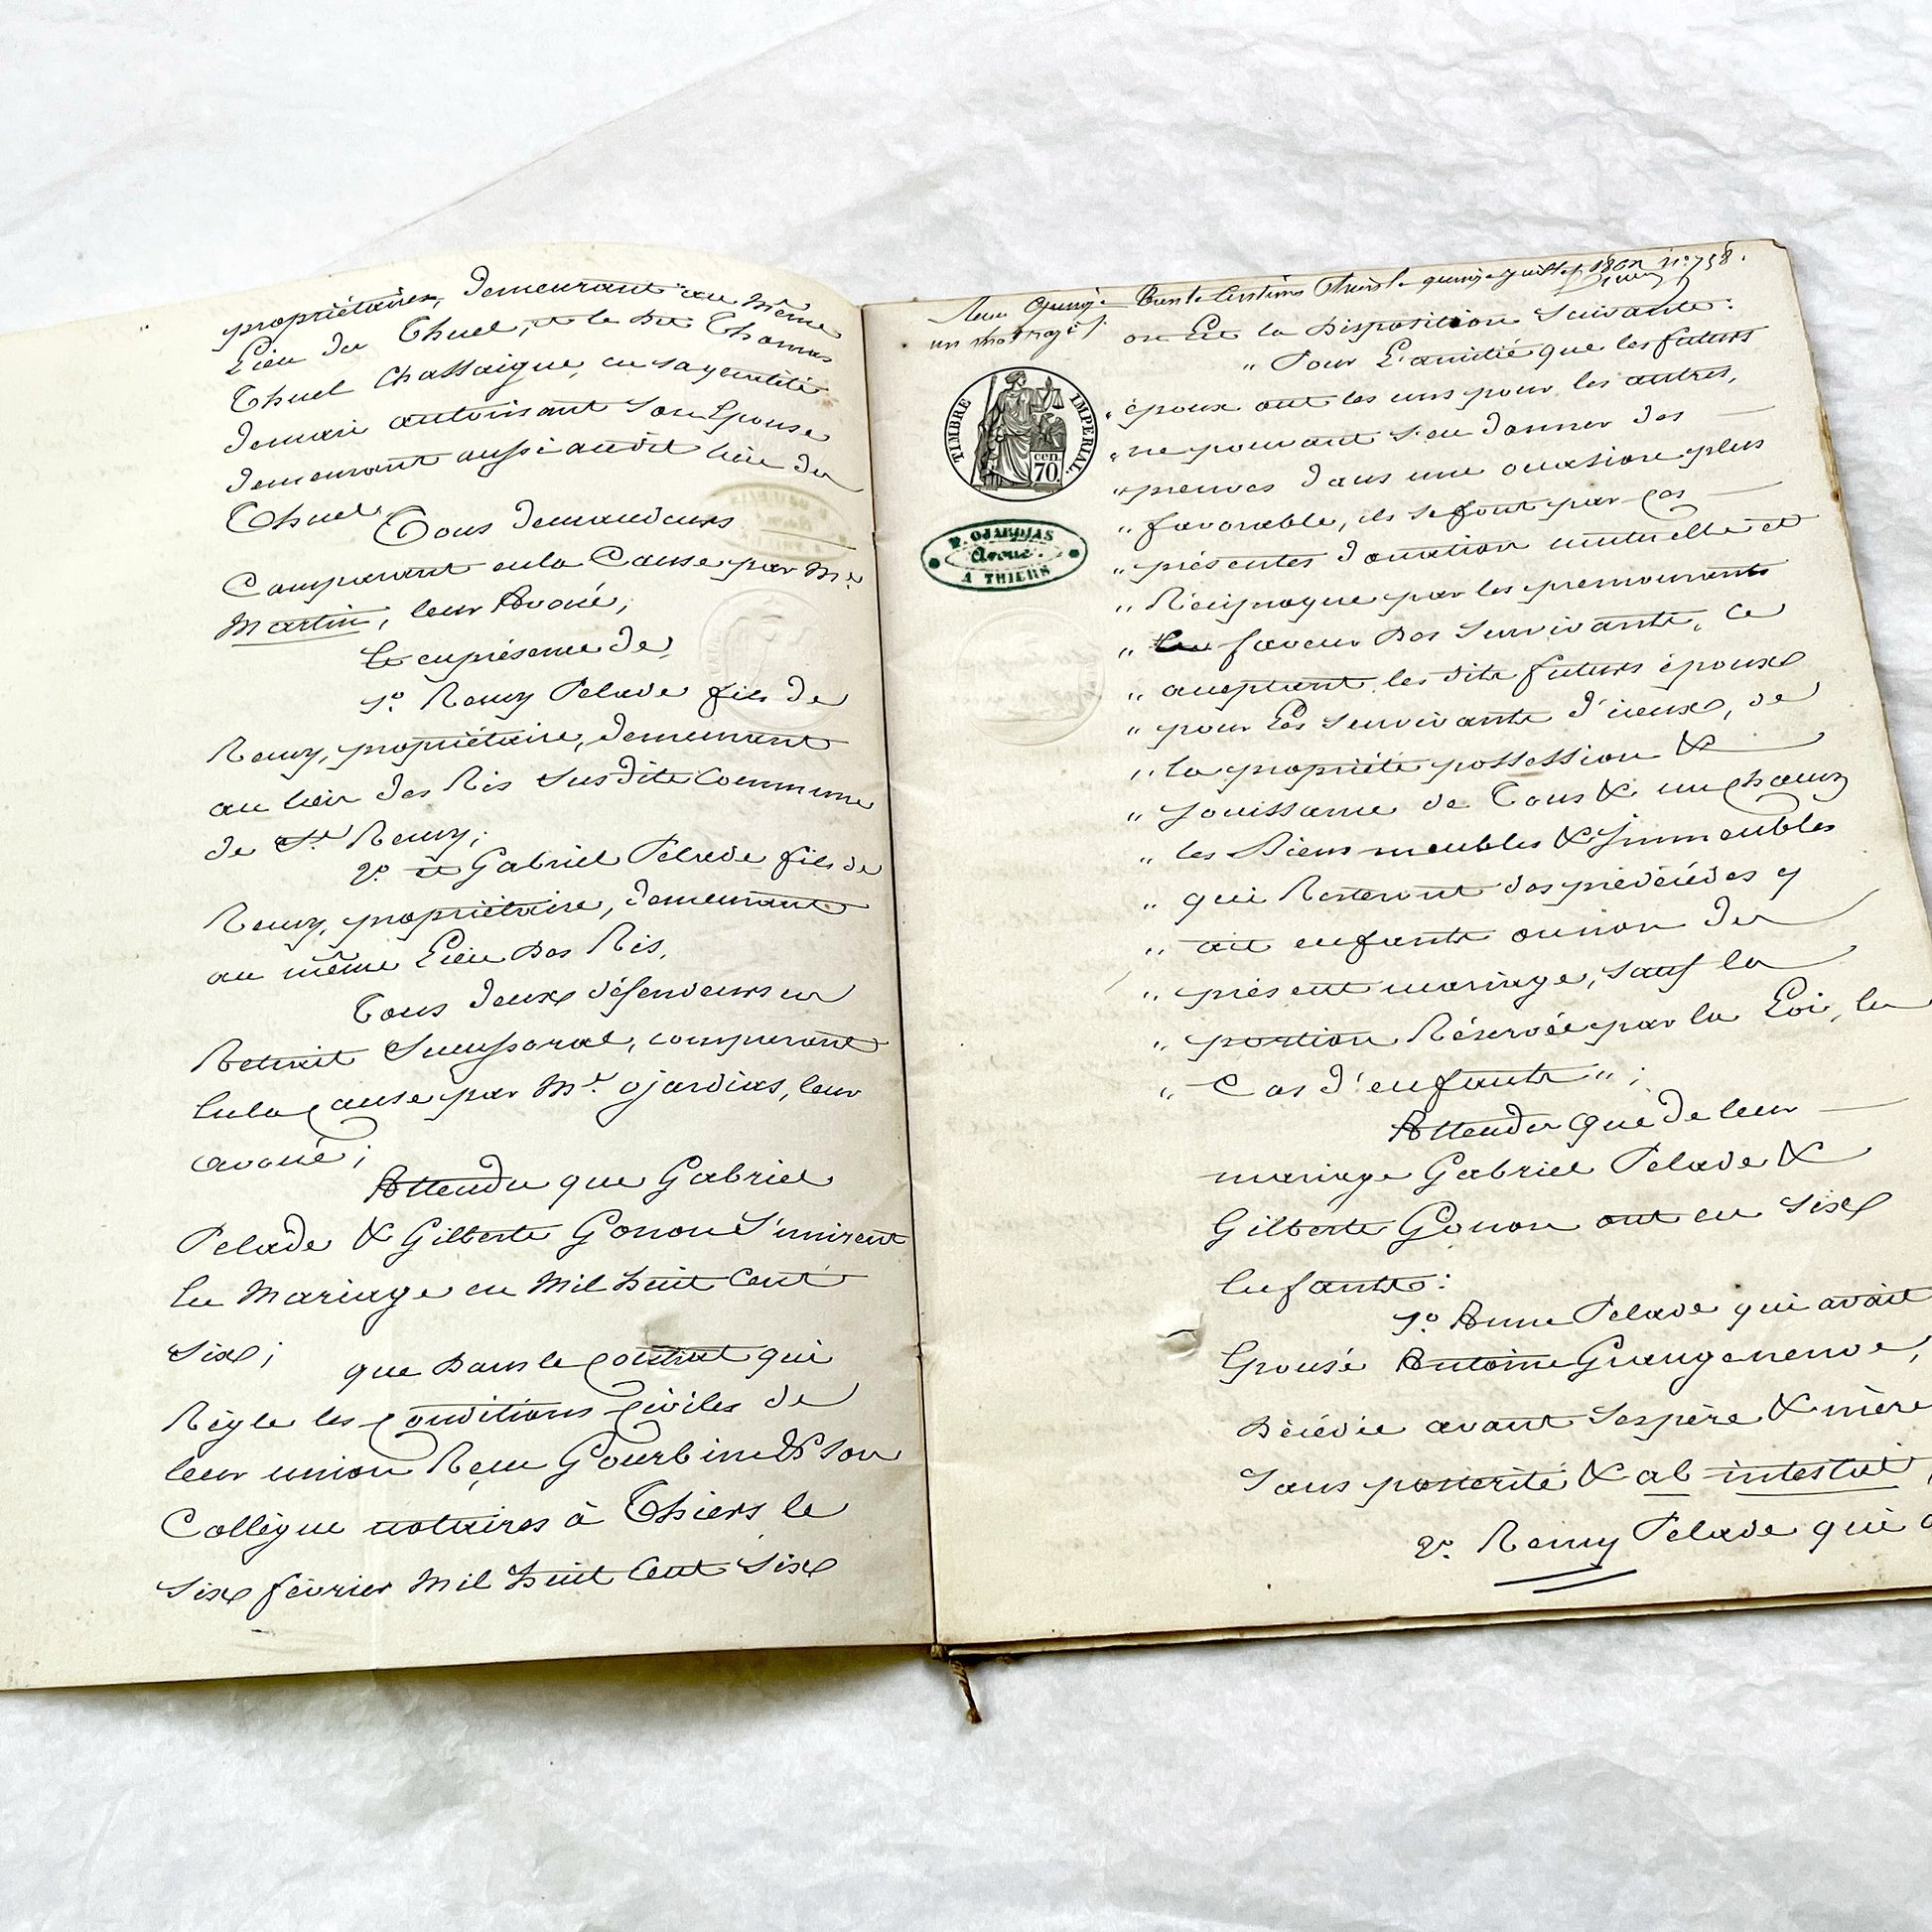 propriétaires, demeurant au même
Lieu du Thuel, et le dit Thomas
Thuel Chassaigne, en sa qualité
de mari autorisant son Epouse
demeurant aussi audit lieu du
Thuel.
Tous demandeurs
Comparant en la Cause par Me
Martin, leur Avoué;
Et en présence de
1o. Remy Pelade fils de
Remy, propriétaire, demeurant
au lieu des Ris susdite Commune
de St. Remy;
2o. et Gabriel Pelade fils de
Remy, propriétaire, demeurant
au même Lieu des Ris.
Tous deux défendeurs en
Retrait Successoral, comparant
en la Cause par Me. Ojardias, leur
avoué;
Attendu que Gabriel
Pelade & Gilberte Gonon S'unirent
en Mariage en Mil huit Cent
Six;
que dans le Contrat qui
Règle les Conditions Civiles de
leur union Reçu Gourbine & Son
Collègue notaires à Thiers le
Six février Mil huit Cent Six
un mot rayé
on Lit la Disposition Suivante:
" Pour L'amitié que les futurs
" époux ont les uns pour les autres,
" ne pouvant s'en donner des
" preuves dans une occasion plus
" favorable, ils se font par ces
" présentes donation mutuelle et
" Réciproque par les premourants
" En faveur des Survivants, ce
" acceptant les dits futurs époux
" pour Les Survivants d'iceux, de
" la propriété possession &
" Jouissance de Tous & un chacun
" les Biens meubles & Immeubles
" qui Resteront des prédécédés y
" ait enfants ou non du
" présent mariage, sauf la
" portion Réservée par la Loi, en
" Cas d'enfants ";
Attendu que de leur
mariage Gabriel Pelade &
Gilberte Gonon ont eu Six
Enfants:
1o. Anne Pelade qui avait
Epousé Antoine Grangeneuve,
Décédée avant Ses père & mère
Sans postérité & ab intestat,
2o. Remy Pelade qui
TIMBRE IMPERIAL.
cen.
70.
P. OJARDIAS
Avoué
A THIERS